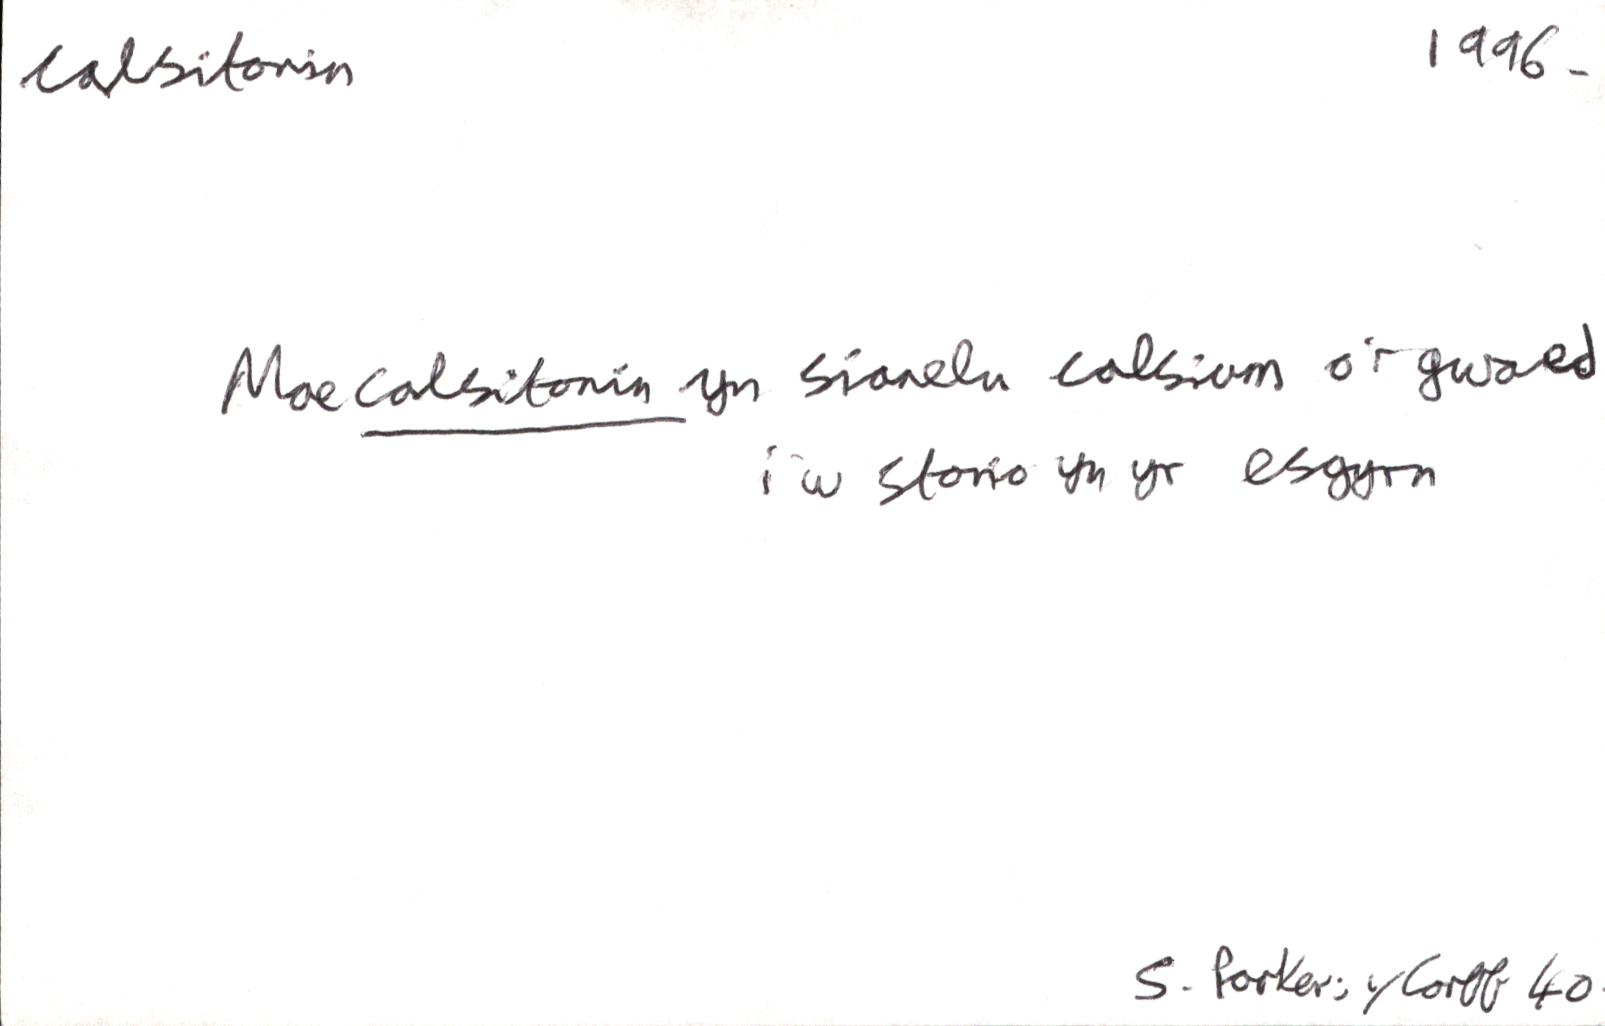 calsitonin
1996-
Mae calsitonin yn sianelu calsium o'r gwaed
i'w storio yn yr esgyrn
S. Parker; y Corff 40.